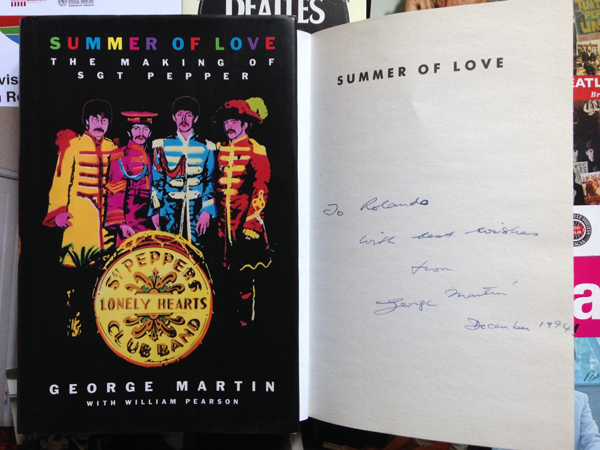 BEATLES
SUMMER OF LOVE
THE MAKING OF
SGT PEPPER
SGT PEPPERS
LONELY HEARTS
CLUB BAND
GEORGE MARTIN
WITH WILLIAM PEARSON
SUMMER OF LOVE
To Rolando
with best wishes
from
George Martin
December 1994